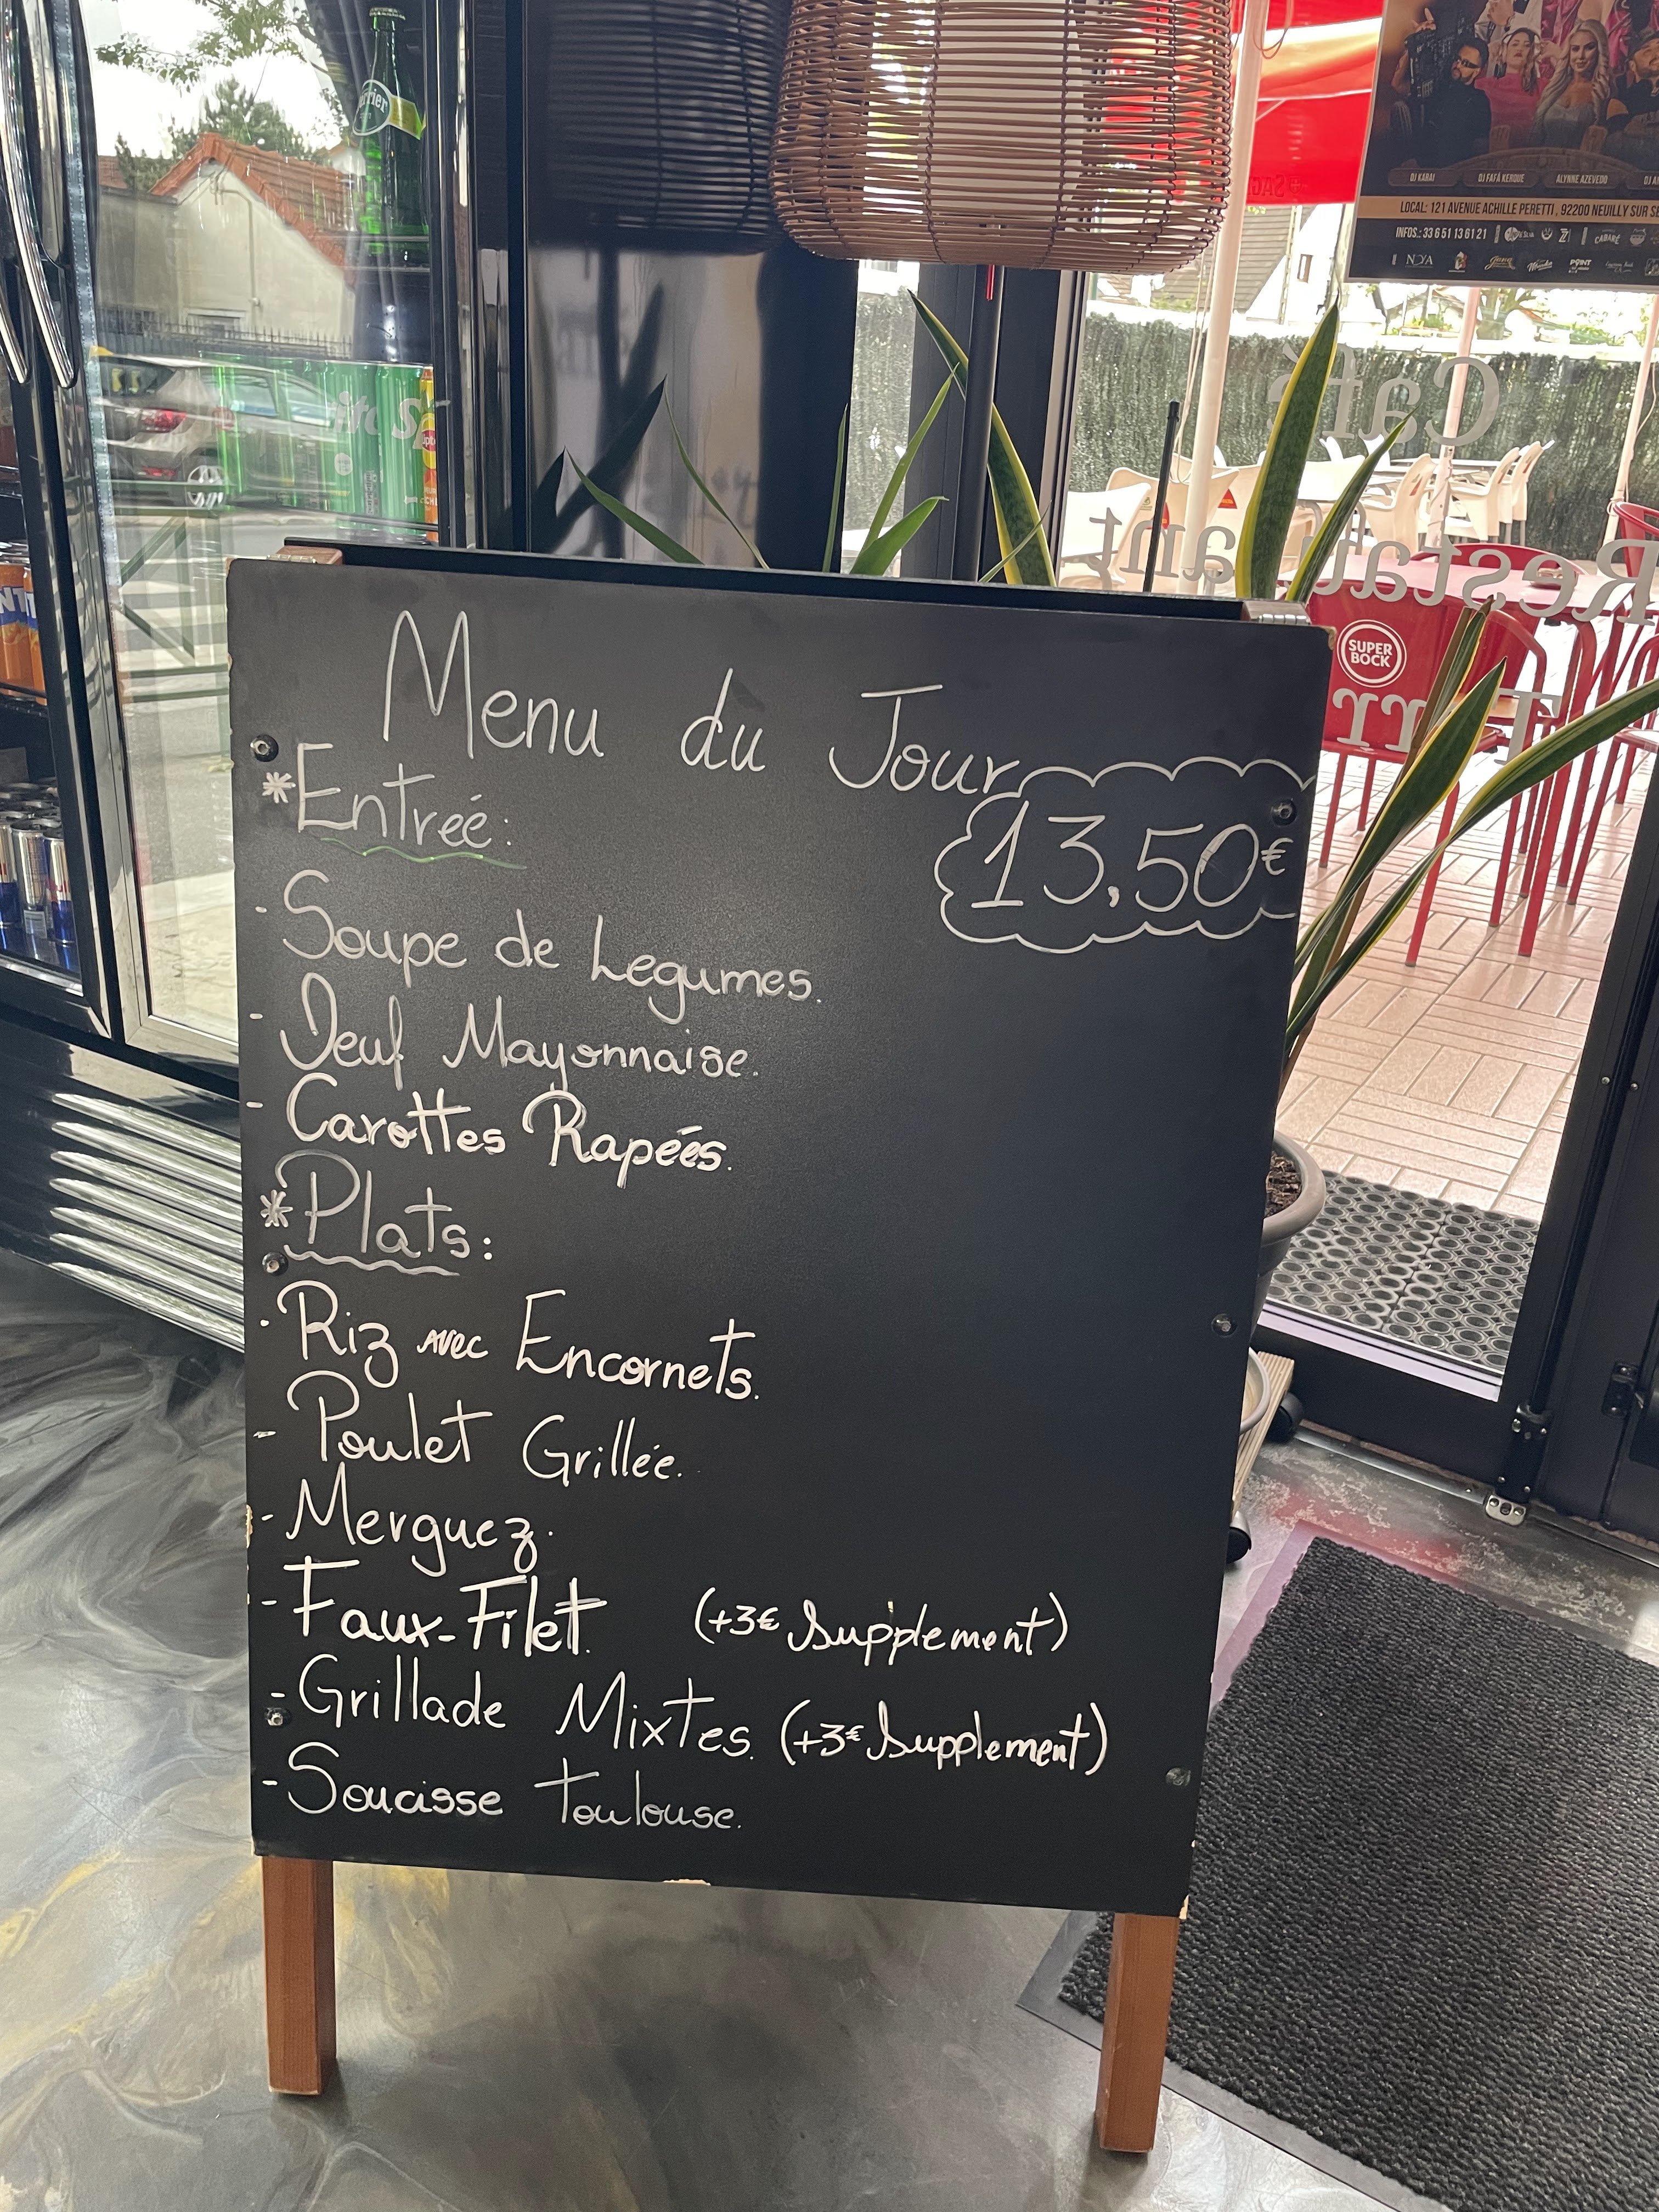 Perrier
DJ KABAI
DJ FAFÁ KERQUE
ALYNNE AZEVEDO
LOCAL: 121 AVENUE ACHILLE PERETTI, 92200 NEUILLY SUR SE
INFOS.: 33 6 51 13 61 21
CABARÉ
NOYA
POINT
Café
Restaurant
SUPER
BOCK
Menu du Jour
13,50€
*Entreé:
- Soupe de Legumes.
- Oeuf Mayonnaise.
- Carottes Rapées.
*Plats:
- Riz avec Encornets.
- Poulet Grillée.
- Merguez.
- Faux-Filet. (+3€ Supplement)
- Grillade Mixtes. (+3€ Supplement)
- Soucisse Toulouse.